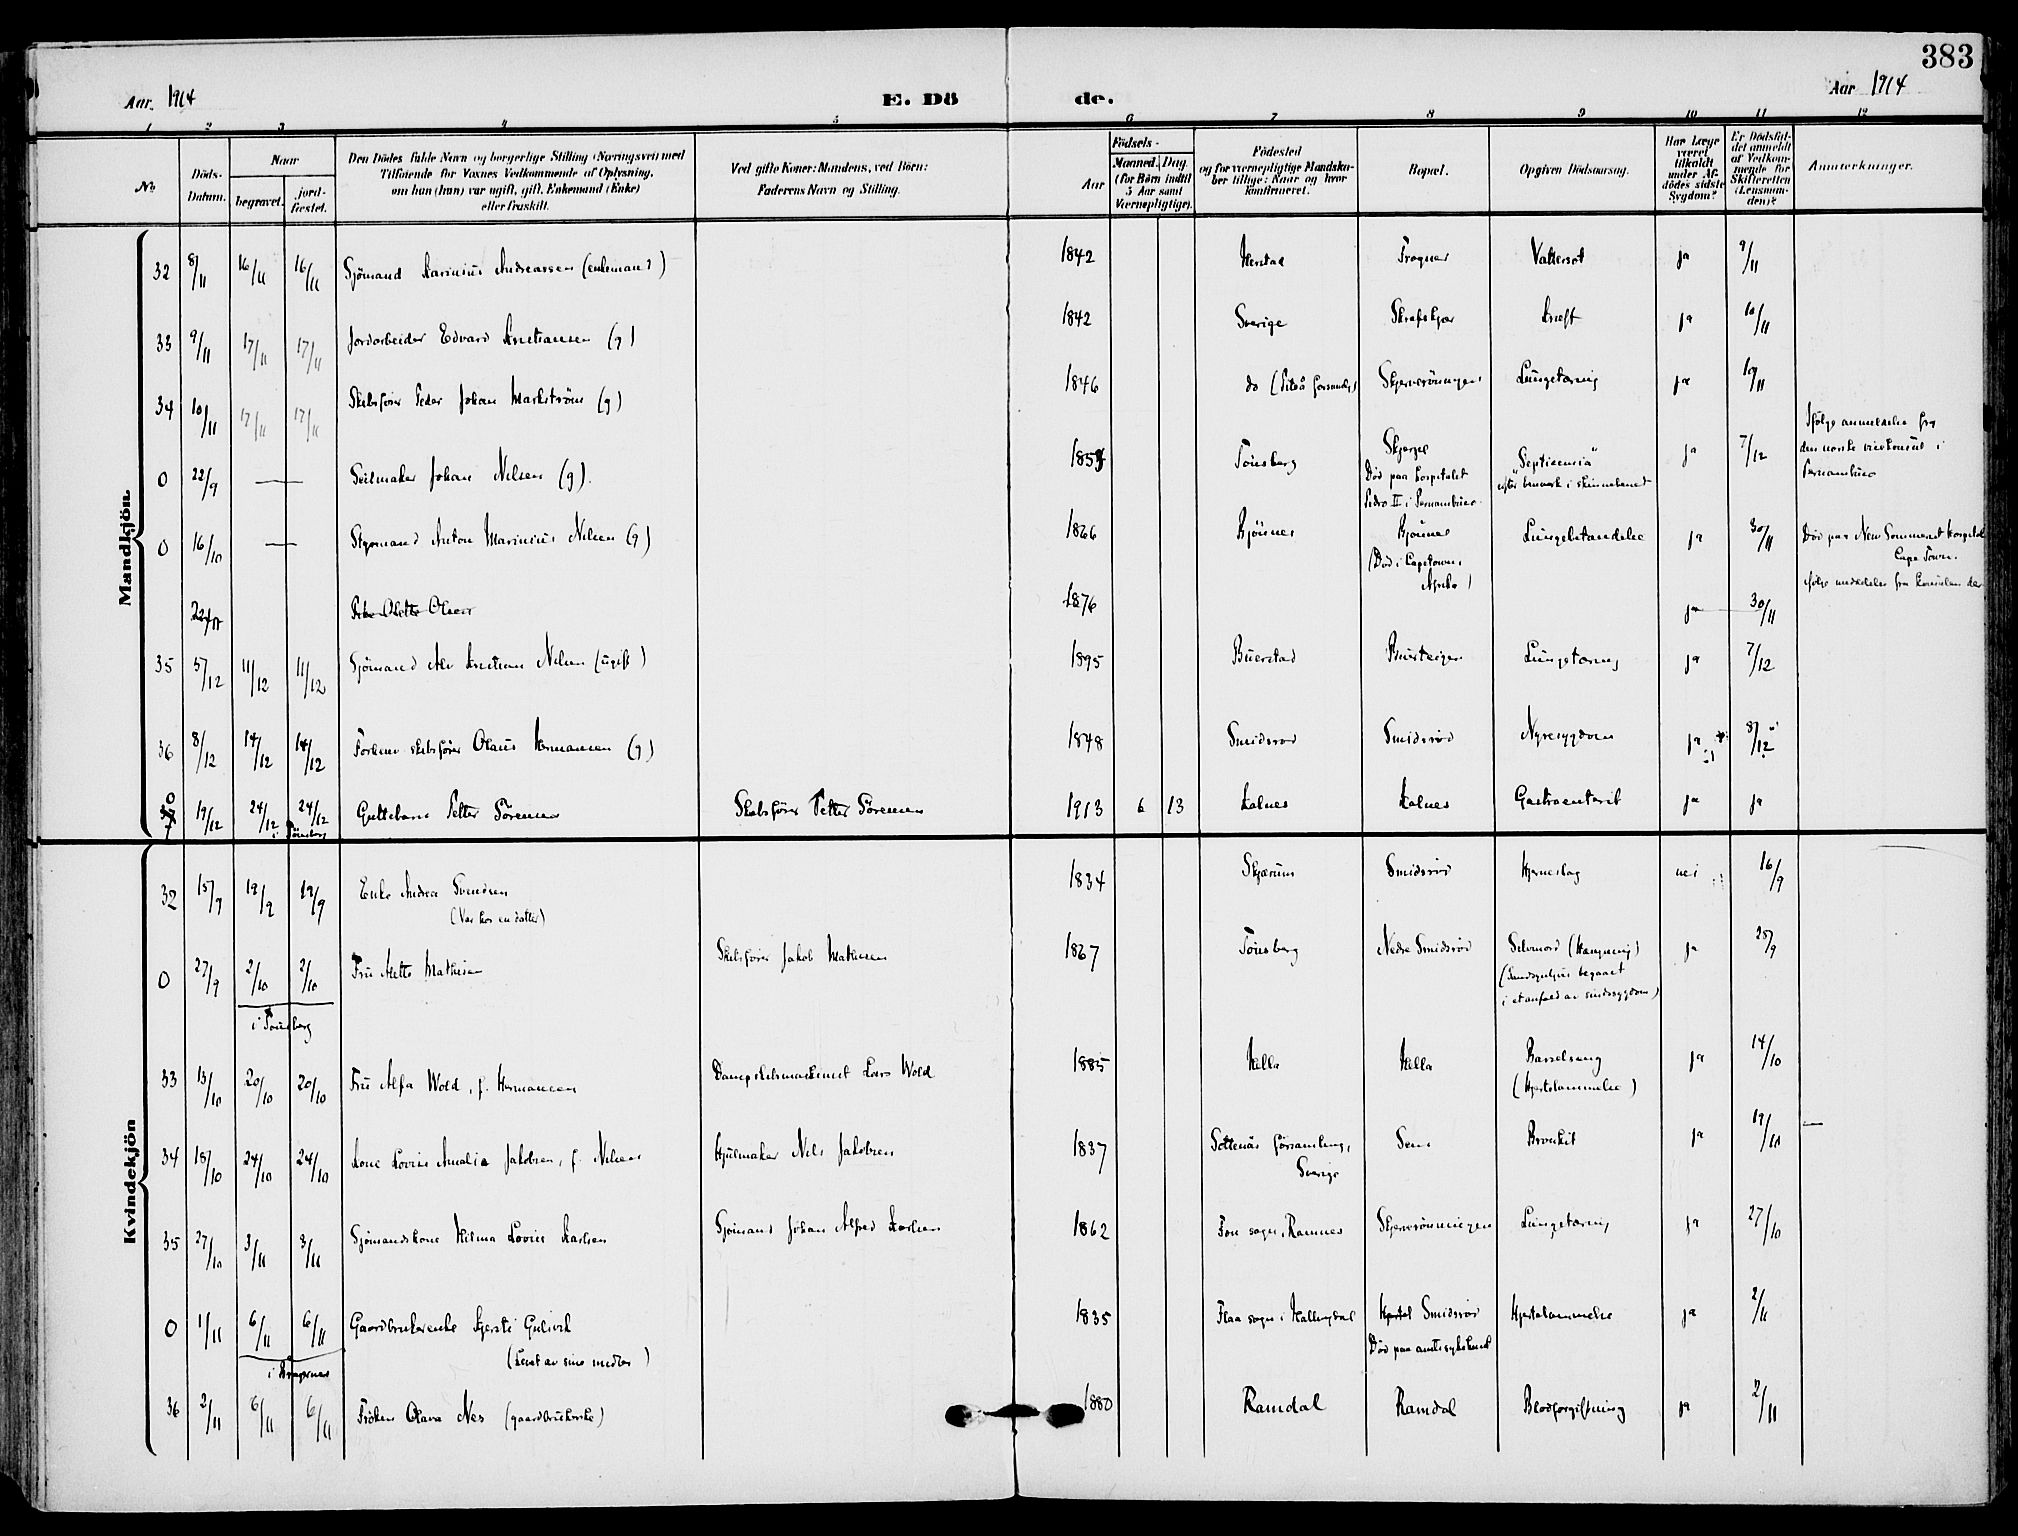 383
Aar. 1914 E. Dö de. Aar 1914
1 2 3 4 5 6 7 8 9 10 11 12
No.
Döds-Datum.
Naar
begravet.
jord-fæstet.
Den Dödes fulde Navn og borgerlige Stilling (Næringsvei) med
Tilföiende for Voxnes Vedkommende af Oplysning,
om han (hun) var ugift, gift, Enkemand (Enke)
eller fraskilt.
Ved gifte Koner: Mandens, ved Börn:
Faderens Navn og Stilling.
Födsels-
Aar
Maaned. Dag.
(for Börn indtil
5 Aar samt
Værnepligtige).
Födested
og for værnepligtige Mandska-
ber tillige: Naar og hvor
konfirmeret.
Bopæl.
Opgiven Dödsaarsag.
Har Læge
været
tilkaldt
under Af-
dödes sidste
Sygdom?
Er Dödsfal-
det anmeldt
af Vedkom-
mende for
Skifteretten
(Lensman-
den)?
Anmærkninger.
Mandkjön
32 8/11 16/11 16/11 Sjömand Karinius Andreassen (enkemand) 1842 Frogner Valtersot ja 9/11
33 9/11 17/11 17/11 Jordarbeider Edvard Kristiansen (g) 1842 Sverige Kræft ja 10/11
34 10/11 17/11 17/11 Skibsfører Peder Johan Markström (g) 1846 do (Piteå forsamlg.) Skjerverönningen Lungetæring ja 10/11
0 22/9 — Seilmaker Johan Nilsen (g). 1854 Tönsberg Skjærgel
Død paa hospitalet
Pedro II i Pernambuco.
"Septicemia"
efter benverk i skinnebenet
ja 7/12
Ifölge anmeldelse fra
den norske vicekonsul i
Pernambuco
0 16/10 — Styrmand Anton Marinius Nilsen (g) 1866 Bjönnes Bjönnes
(Död i Capetown,
Afrika)
Lungebetændelse ja 30/11
Död paa New Sommerset Hospital
Cape Town.
ifölge meddelelse fra konsulen der
22/11 Olette Olsen 1876 ja 30/11
35 5/12 11/12 11/12 Sjömand Alv Kristian Nilsen (ugift) 1895 Buerstad Buersteigen Lungetæring ja 7/12
36 8/12 14/12 14/12 Forhenv. skibsförer Olaus Hermansen (g) 1848 Smidsrød Smidsrød Nyresygdom ja 8/12
0 19/12 24/12 24/12 Guttebarn Petter Sörensen Skibsförer Petter Sörensen 1913 6 13 Kalnes Kalnes Gastroenterit ja ja
i Tönsberg
Kvindekjön
32 15/9 19/9 19/9 Enke Andrea Svendsen 1834 Skjærum Smidsrød Hjerneslag nei 16/9
(Var hos en datter)
0 27/9 2/10 2/10 Fru Mette Mathisen Skibsförer Jakob Mathisen 1867 Tönsberg Nedre Smidsrød Selvmord (Hængning) ja 28/9
(Sandsynligvis begaaet
i et anfald av sindssygdom)
i Tönsberg
33 13/10 20/10 20/10 Fru Alfa Wold, f. Hermansen Dampskibsmaskinist Lars Wold 1885 Hella Hella Barselseng ja 14/10
(Hjertelammelse)
34 18/10 24/10 24/10 Kone Lovise Amalia Jakobsen, f. Nilsen Hjulmaker Nils Jakobsen 1837 Sottenäs församling,
Sverige
Sem Bronkit ja 19/10 —
35 27/10 3/11 3/11 Sjömandskone Hilma Lovise Karlsen Sjömand Johan Alfred Karlsen 1862 Fon sogn, Ramnes Skjerverönningen Lungetæring ja 27/10
0 1/11 6/11 6/11 Gaardbrukerenke Kjersti Gulsvik 1835 Flaa sogn i Hallingdal Smidsrød Hjertelammelse ja 2/11
(Levet av sine midler) Död paa amtssykehuset
i Bragernes
36 2/11 6/11 6/11 Fröken Olava Nes (gaardbrukerske) 1880 Ramdal Ramdal Blodforgiftning ja 2/11